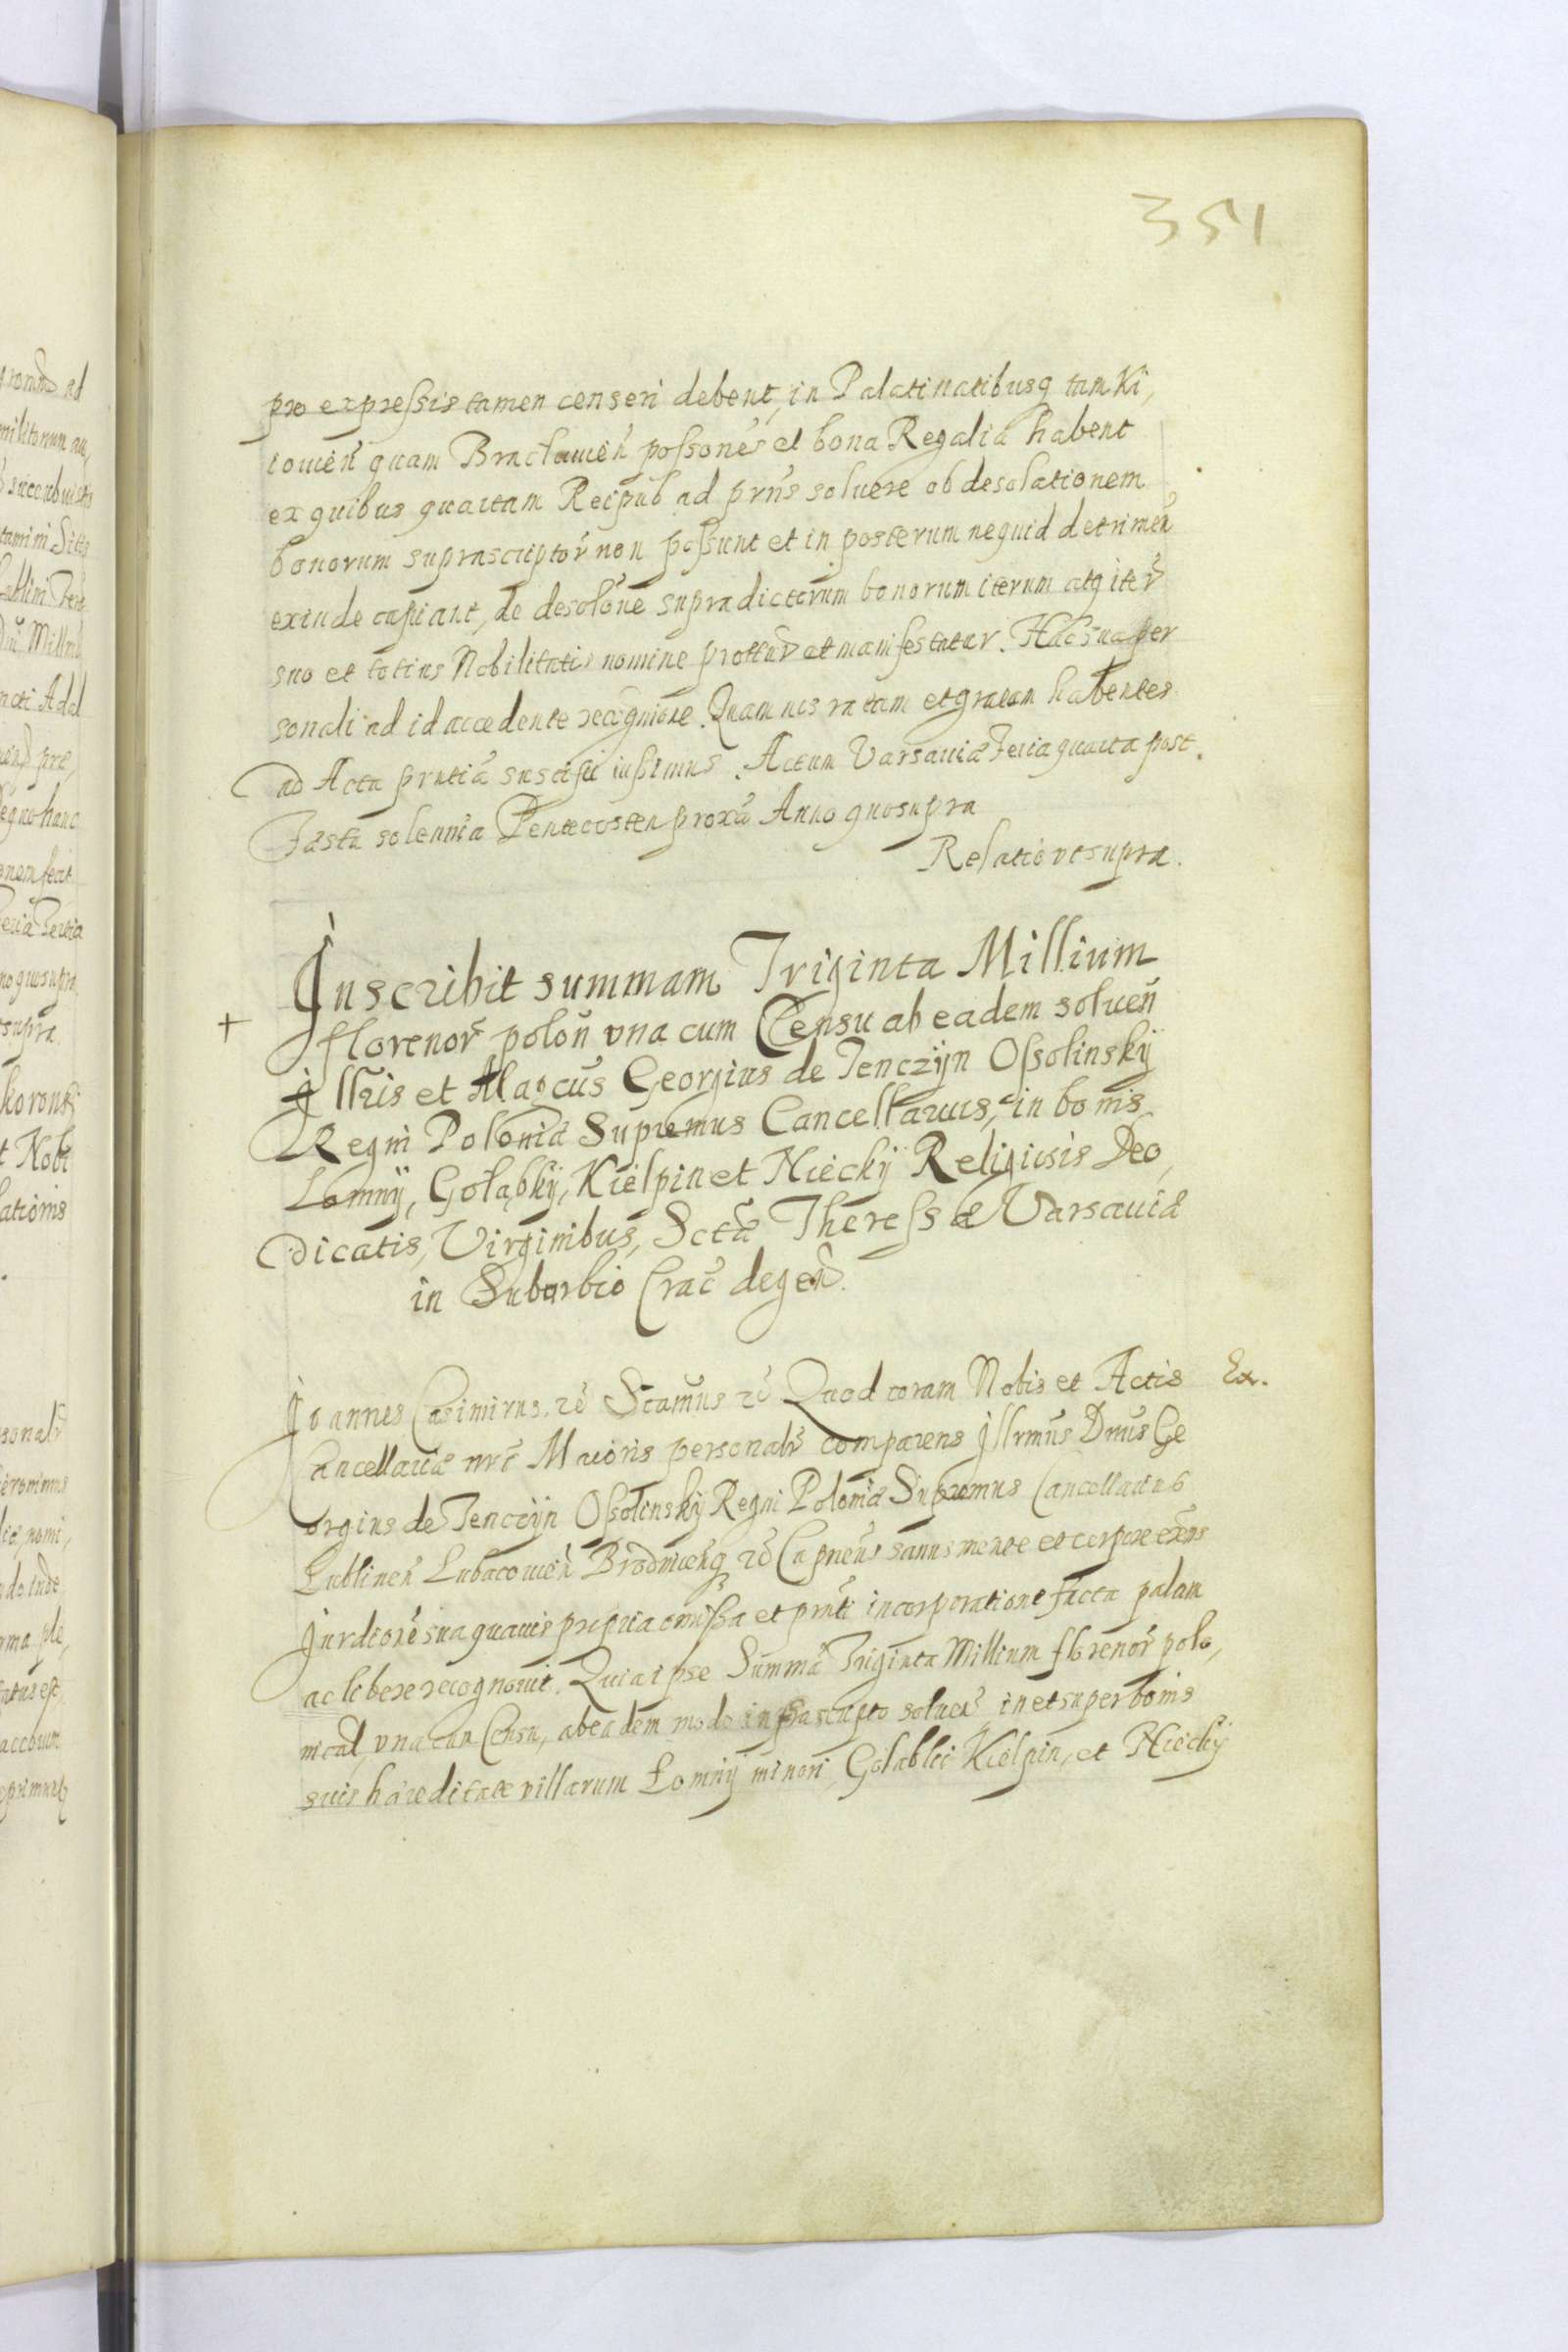 351
pro expressis tamen censeri debent, in Palatinatibusq tam Ki,
iouień quam Bracłauień possonēs et bona Regalia habent
ex quibus quartam Reipub ad prn̄s soluere ob desolationem
bonorum suprascriptor̄ non possunt et in posterum nequid detrimen̄
exinde capiant, de desolōne supradictorum bonorum iterum atq iter̄
suo et totius Nobilitatis nomine prottur̄ et manifestatur. Hac sua per
sonali ad id accedente recognione. Quam nos ratam et gratam habentes
ad Acta prntiā suscipi iussimus. Actum Varsauiæ Feria quarta post
Festa solennia Pentecosten proxā Anno quosupra
Relatio vt supra.
Inscribit summam Triginta Millium
+ florenor̄ polon̄ vna cum Censu ab eadem soluen̄
Illris et Magcūs Georgius de Tenczÿn Ossolinskÿ
Regni Poloniæ Supremus Cancellarius, in bonis
Lomnÿ, Gołąbkÿ, Kiełpin et Nieckÿ Religiosis Deo,
dicatis, Virginibus, Sctæ Theressæ Varsauiæ
in Suburbio Crac̄ degen̄.
Ioannes Casimirus. rē Scamūs rē Quod coram Nobis et Actis Ex.
Cancellariæ nrē Maioris personalr̄ comparens Illrmūs Dnūs Ge
orgius de Tenczÿn Ossolinskÿ Regni Poloniæ Supremus Cancellarius
Lublineń Lubaczouień Brodnicenq rē Capneūs sanus mente et corpore exn̄s
Jurdione sua quauis propria omissa et prnti incorporatione facta palam
ac libere recognouit. Quia ipse Summā Triginta Millium florenor̄ polo,
nical, vna cum Censu, ab eadem modo infrascripto soluen̄ in et super bonis
suis hæreditariæ villarum Łomnÿ minori, Gołabki Kiełpin, et Nieckÿ